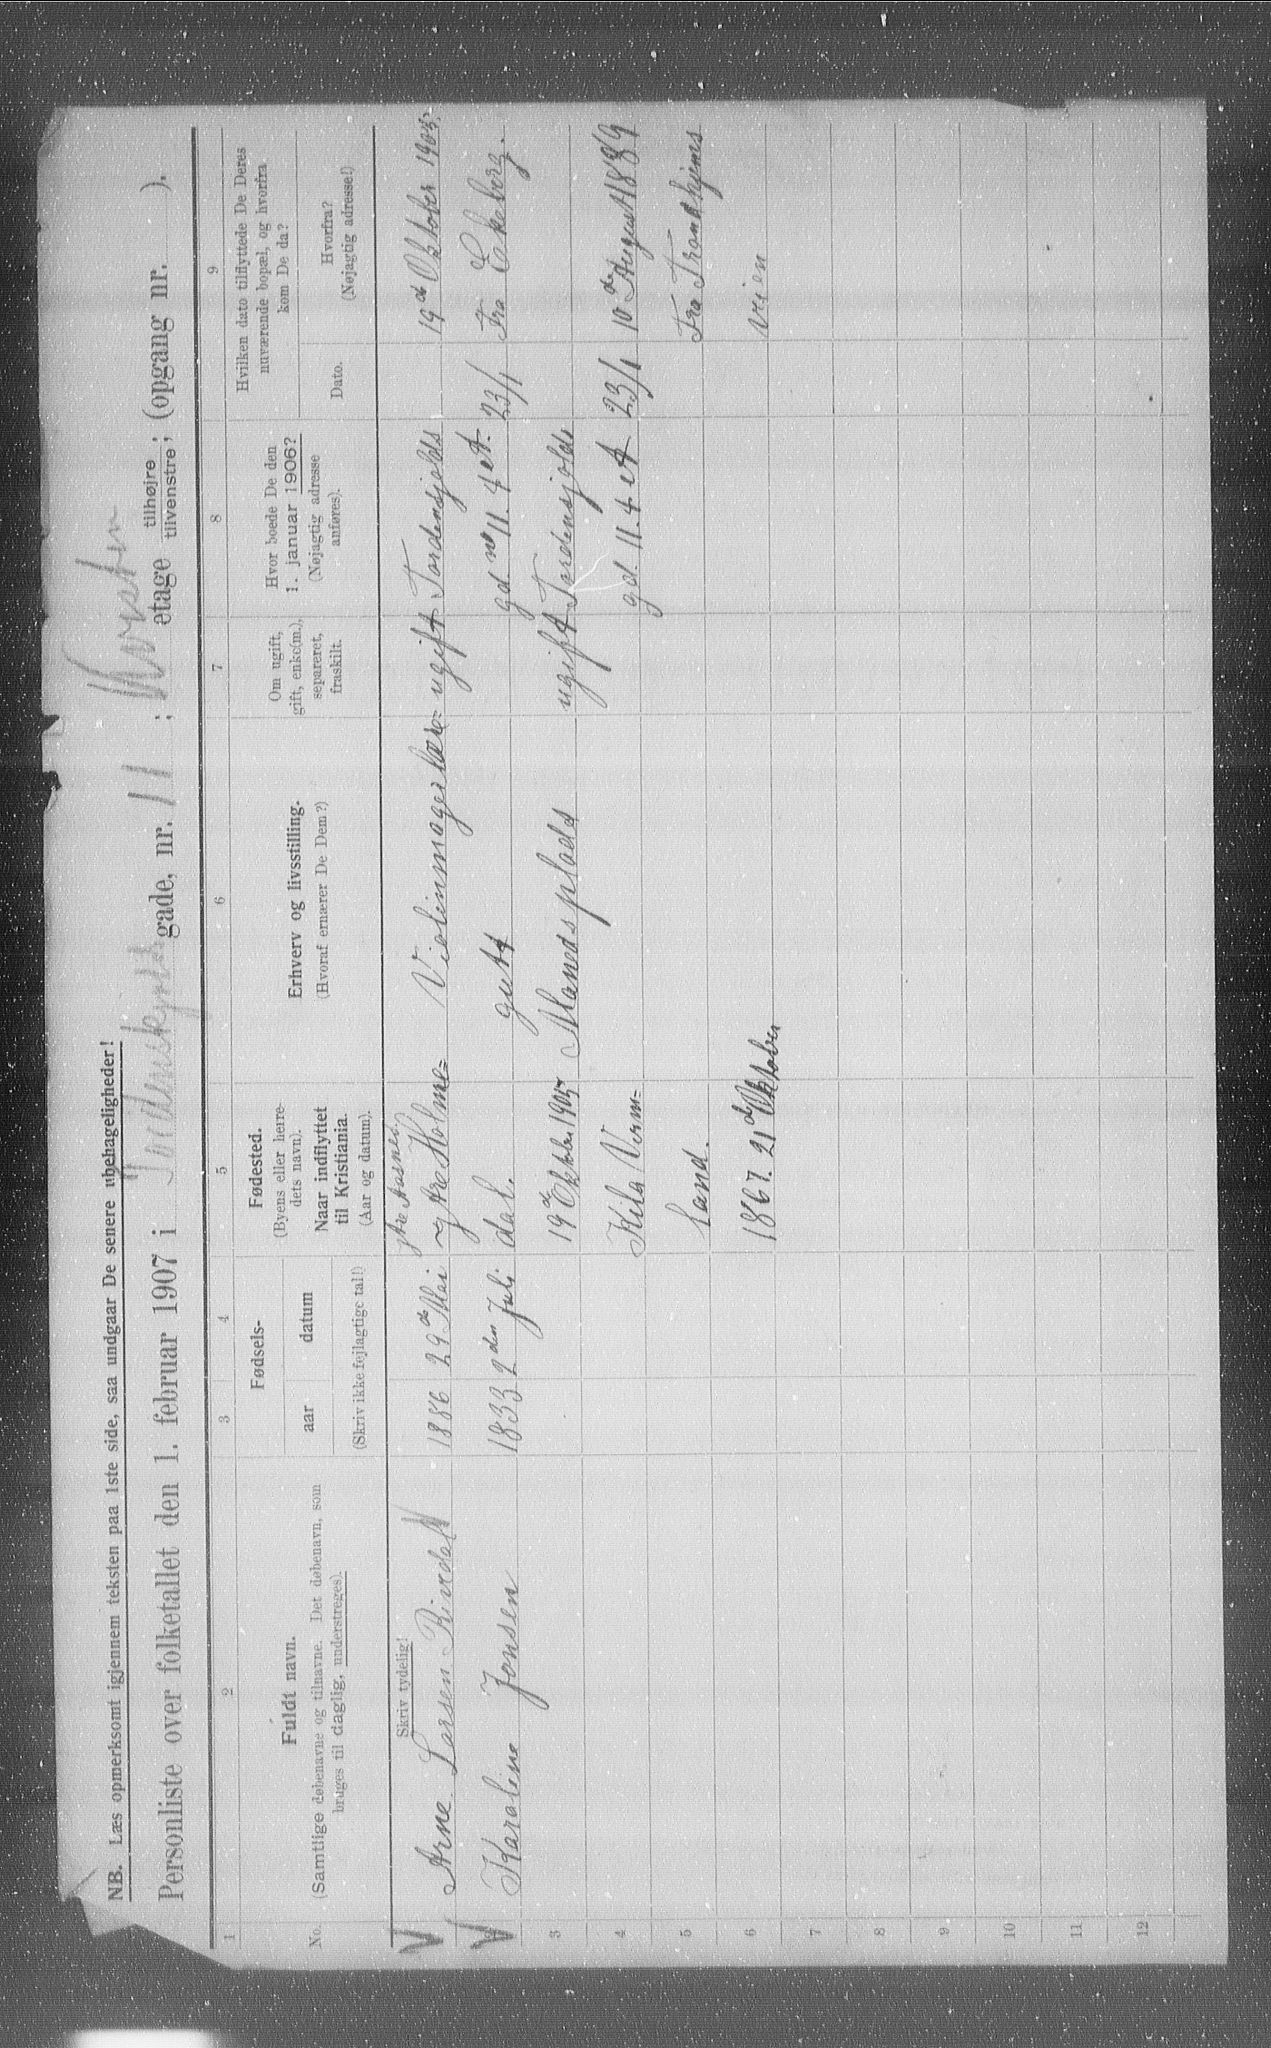 NB. Læs opmerksomt igjennem teksten paa 1ste side, saa undgaar De senere ubehageligheder!
Personliste over folketallet den 1. februar 1907 i Tordenskjolds gade, nr. 11 ; Kvisten etage tilhøjre ; tilvenstre ; (opgang nr. ).
1 2 3 4 5 6 7 8 9
No.
Fuldt navn.
(Samtlige døbenavne og tilnavne. Det døbenavn, som
bruges til daglig, understreges).
Fødsels-
aar datum
(Skriv ikke fejlagtige tal!)
Fødested.
(Byens eller herre-
dets navn).
Naar indflyttet
til Kristiania.
(Aar og datum).
Erhverv og livsstilling.
(Hvoraf ernærer De Dem?)
Om ugift,
gift, enke(m.),
separeret,
fraskilt.
Hvor boede De den
1. januar 1906?
(Nøjagtig adresse
anføres).
Hvilken dato tilflyttede De Deres
nuværende bopæl, og hvorfra
kom De da?
Dato.
Hvorfra?
(Nøjagtig adresse!)
Skriv tydelig!
Arne Larsen 1886 29de Mai Holme= Violinmagerlære= ugift Tordensjolds 19de Oktober 1905
2 Karoline Jonsen 1833 2den Juli dal. gutt gd. no 11. 4 et. 23/1 Fra Ekeberg.
3 19de Oktober 1905 plads ugift Tordensjolds
4 Kila Verm= gd. 11. 4 et 23/1 10de August 1889
5 land. Fra Trondhjems
6 1867. 21de Oktober veien
7
8
9
10
11
12